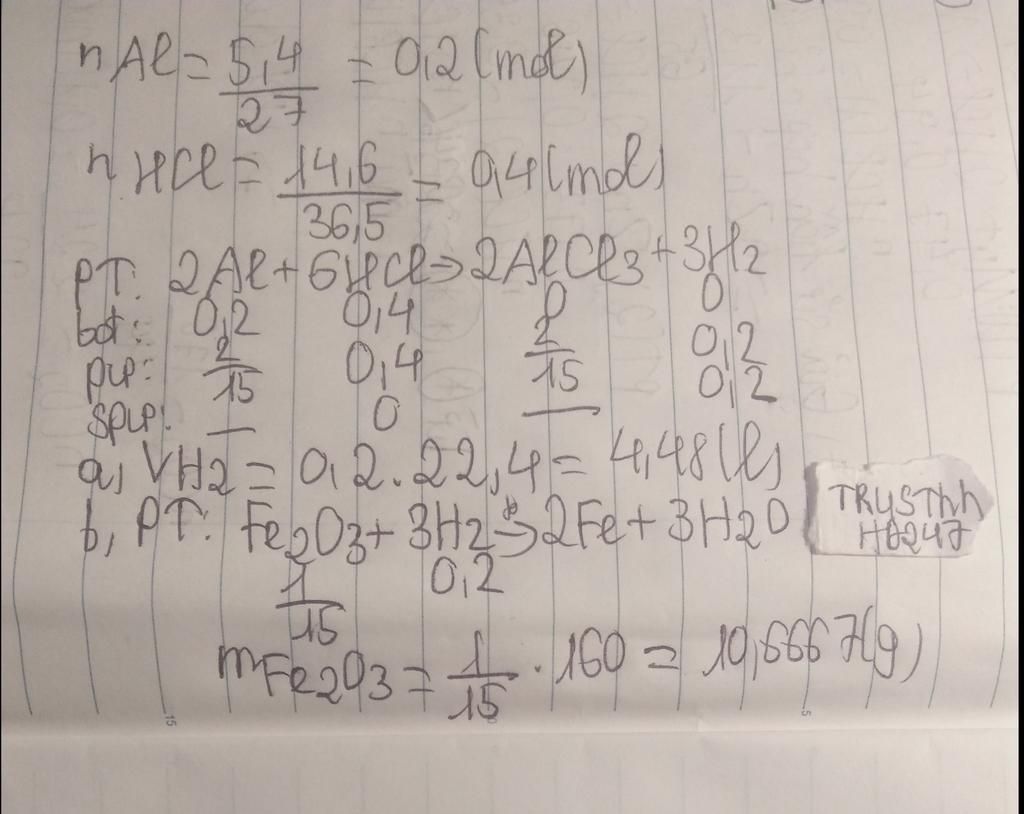 nAl = 5,4/27 = 0,2 (mol)
nHCl = 14,6/36,5 = 0,4 (mol)
PT: 2Al + 6HCl → 2AlCl3 + 3H2
bđ: 0,2 0,4 0 0
pư: 2/15 0,4 2/15 0,2
spư: — 0 — 0,2
a, VH2 = 0,2.22,4 = 4,48 (l)
b, PT: Fe2O3 + 3H2 → 2Fe + 3H2O
1/15 0,2
mFe2O3 = 1/15 . 160 = 10,6667 (g)
TRYSThh
HB247
15
5